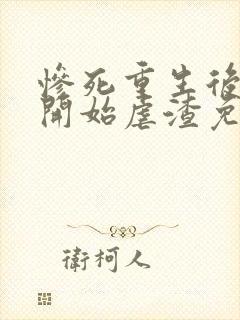 慘死重生後
開始虐渣兔
衛柯人